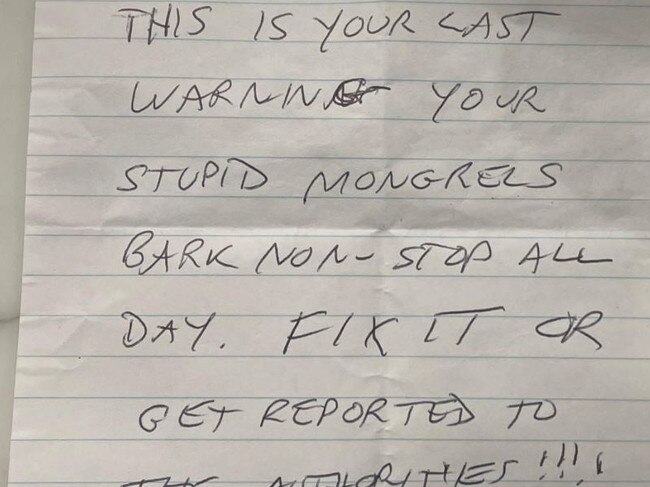 THIS IS YOUR LAST
WARNING YOUR
STUPID MONGRELS
BARK NON-STOP ALL
DAY. FIX IT OR
GET REPORTED TO
THE AUTHORITIES!!!!